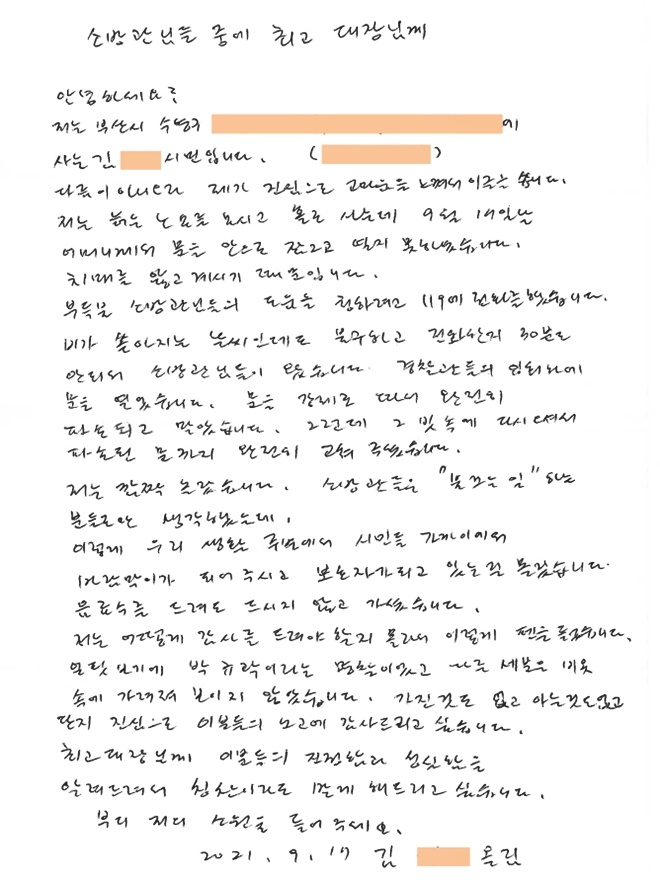 소방관님들 중에 최고 대장님께
안녕하세요?
저는 부산시 수영구 에
사는 김 시민입니다. ( )
다름이 아니오라 제가 진심으로 고마움을 느껴서 이글을 씁니다.
저는 늙은 노모를 모시고 홀로 사는데 9월 14일날
어머니께서 문을 안으로 잠그고 열지 못하였습니다.
치매를 앓고 계시기 때문입니다.
부득불 소방관님들의 도움을 청하려고 119에 전화를 했습니다.
비가 쏟아지는 날씨인데도 불구하고 전화한지 30분도
안되어 소방관님들이 왔습니다. 경찰관들의 입회하에
문을 열었습니다. 문을 강제로 따서 완전히
파손되고 말았습니다. 그런데 그 빗속에 다시 오셔서
파손된 문까지 완전히 고쳐 주셨습니다.
저는 깜짝 놀랐습니다. 소방관들은 "불끄는 일" 하는
분들로만 생각했는데,
이렇게 우리 생활 주변에서 시민들 가까이에서
바람막이가 되어 주시고 보호자가 되고 있는 줄 몰랐습니다.
음료수를 드려도 드시지 않고 가셨습니다.
저는 어떻게 감사를 드려야 할지 몰라서 이렇게 펜을 들었습니다.
얼핏 보기에 박규락이라는 명찰이었고 나름 세분은 비옷
속에 가려져 보이지 않았습니다. 가진것도 없고 아는것도없고
단지 진심으로 이분들의 노고에 감사드리고 싶습니다.
최고대장님께 이분들의 친절함과 성실함을
알려드려서 칭찬이라도 받게 해드리고 싶습니다.
부디 저의 소원을 들어주세요.
2021. 9. 17 김 올림